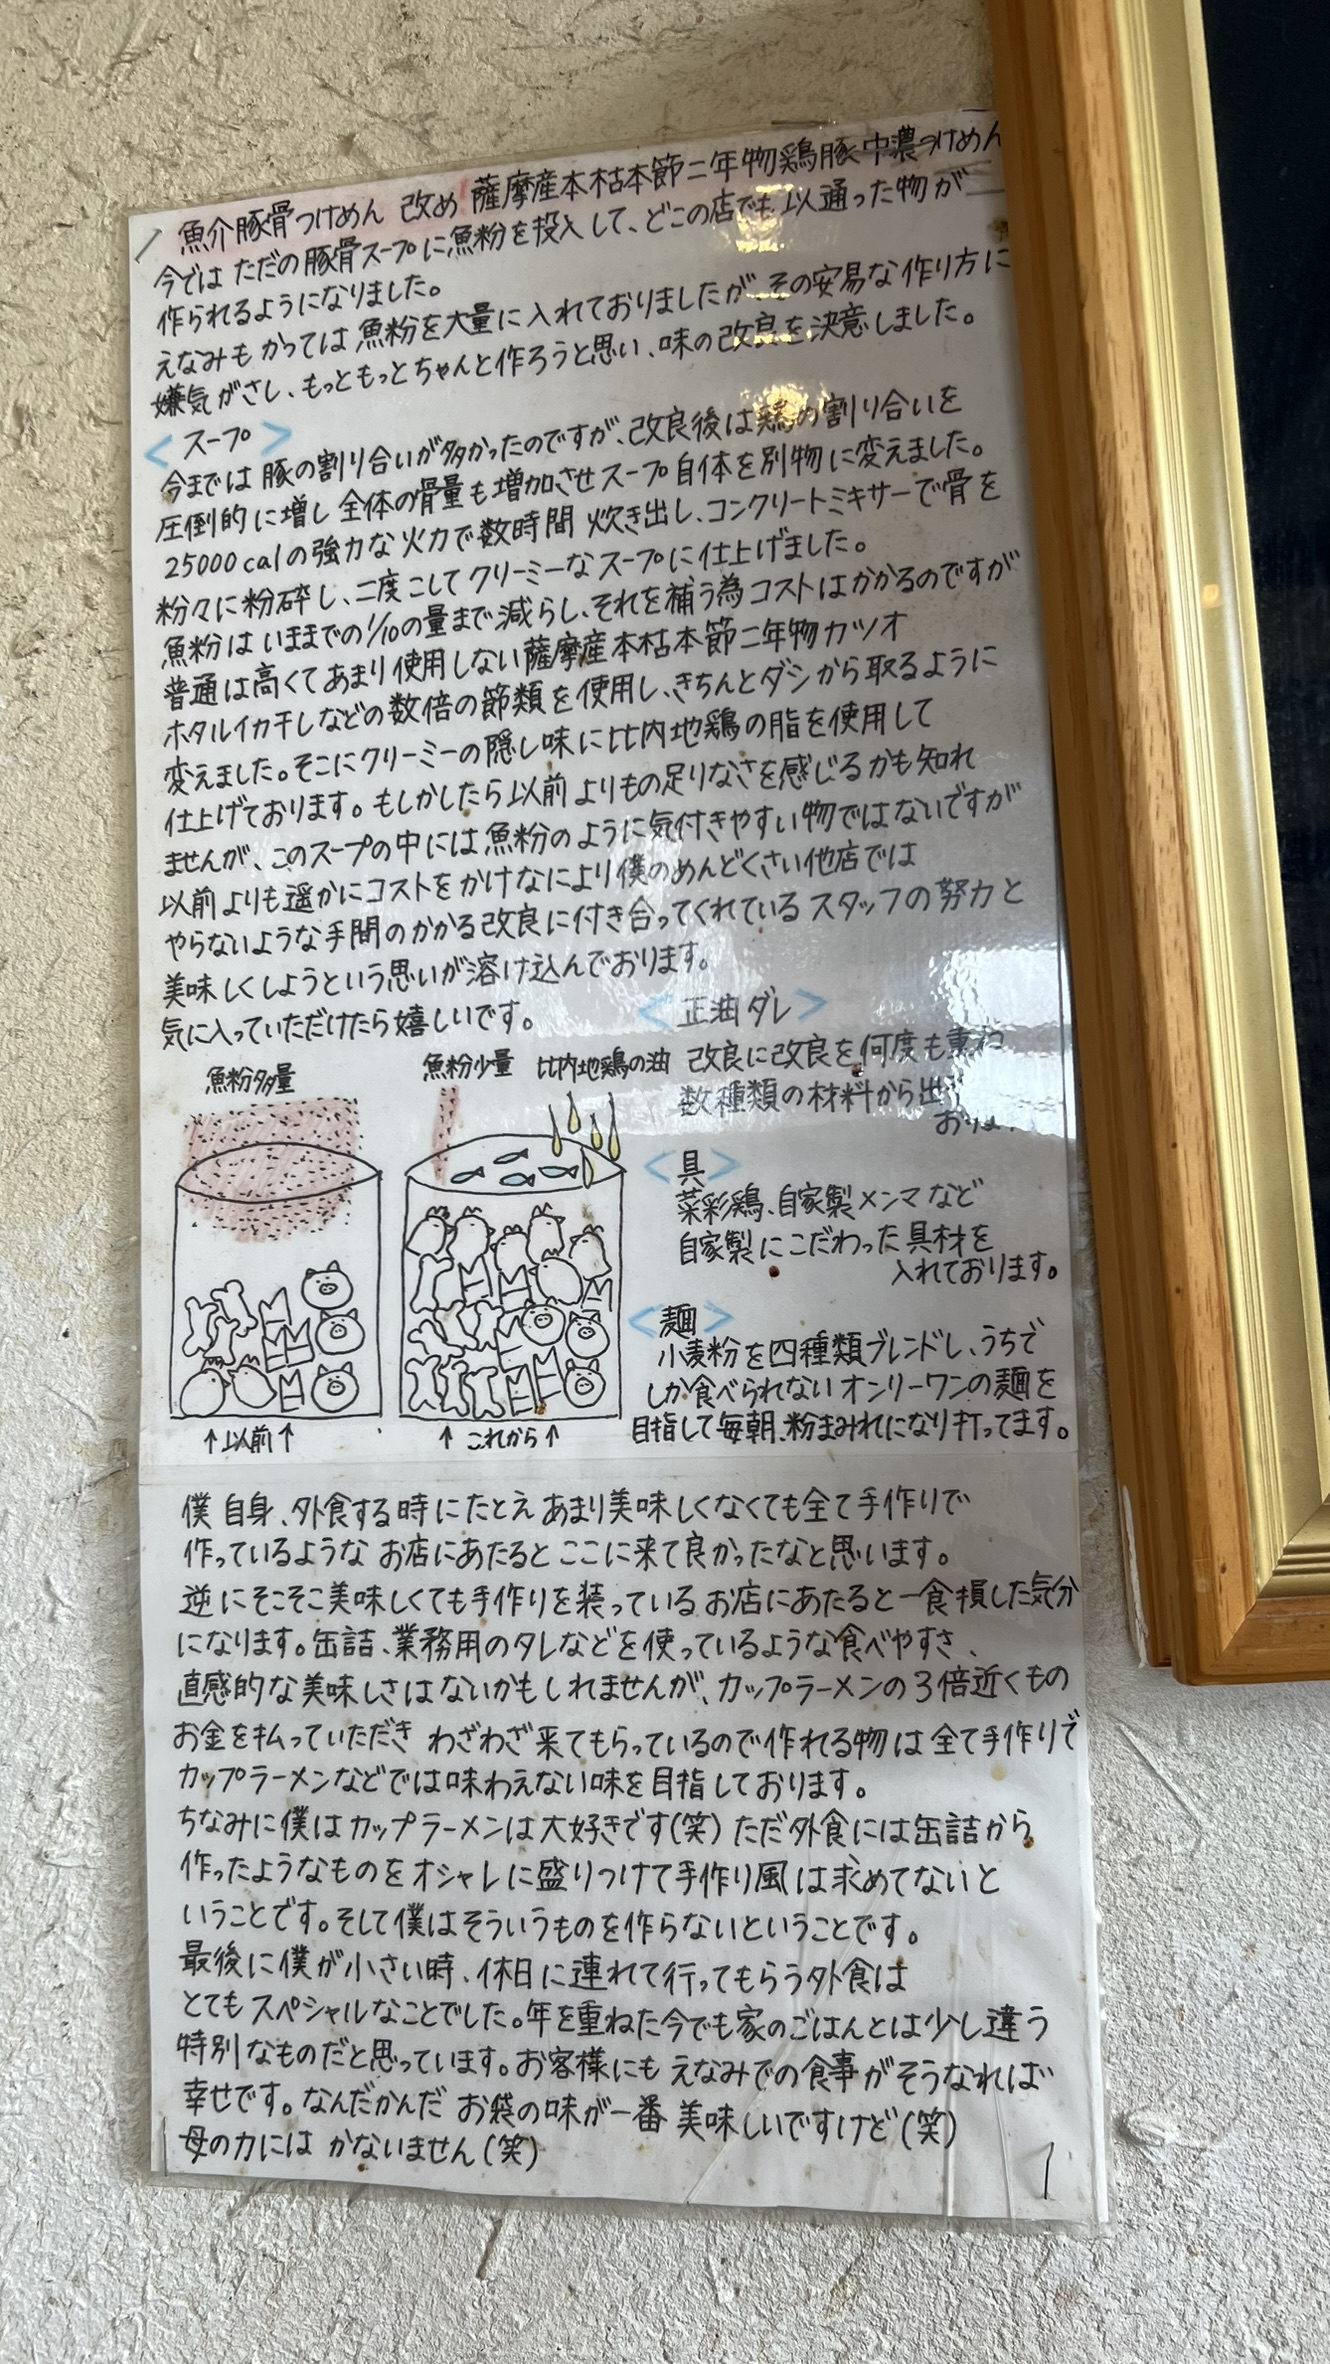 魚介豚骨つけめん 改め 薩摩産本枯本節二年物鶏豚中濃つけめん
今では ただの豚骨スープに魚粉を投入して、どこの店でも以通った物が
作られるようになりました。
えなみも かつては魚粉を大量に入れておりましたが、その安易な作り方に
嫌気がさし、もっともっとちゃんと作ろうと思い、味の改良を決意しました。
<スープ>
今までは 豚の割り合いが多かったのですが、改良後は鶏の割り合いを
圧倒的に増し 全体の骨量も増加させスープ自体を別物に変えました。
25000calの強力な火力で数時間 炊き出し、コンクリートミキサーで骨を
粉々に粉砕し、二度こしてクリーミーなスープに仕上げました。
魚粉はいままでの1/10の量まで減らし、それを補う為コストはかかるのですが
普通は高くてあまり使用しない薩摩産本枯本節二年物カツオ
ホタルイカ干しなどの数倍の節類を使用し、きちんとダシから取るように
変えました。そこにクリーミーの隠し味に比内地鶏の脂を使用して
仕上げております。もしかしたら以前よりもの足りなさを感じるかも知れ
ませんが、このスープの中には魚粉のように気付きやすい物ではないですが
以前よりも遥かにコストをかけなにより僕のめんどくさい他店では
やらないような手間のかかる改良に付き合ってくれているスタッフの努力と
美味しくしようという思いが溶け込んでおります。
気に入っていただけたら嬉しいです。
<正油ダレ>
改良に改良を何度も重ね
数種類の材料から出
魚粉多量
魚粉少量
比内地鶏の油
↑以前↑
↑これから↑
<具>
菜彩鶏、自家製メンマなど
自家製にこだわった具材を
入れております。
<麺>
小麦粉を四種類ブレンドし、うちで
しか食べられないオンリーワンの麺を
目指して毎朝、粉まみれになり打ってます。
僕自身、外食する時にたとえあまり美味しくなくても全て手作りで
作っているような お店にあたると ここに来て良かったなと思います。
逆にそこそこ美味しくても手作りを装っているお店にあたると一食損した気分
になります。缶詰、業務用のタレなどを使っているような食べやすさ、
直感的な美味しさはないかもしれませんが、カップラーメンの3倍近くもの
お金を払っていただき わざわざ来てもらっているので作れる物は全て手作りで
カップラーメンなどでは味わえない味を目指しております。
ちなみに僕はカップラーメンは大好きです(笑)ただ外食には缶詰から
作ったようなものをオシャレに盛りつけて手作り風は求めてないと
いうことです。そして僕はそういうものを作らないということです。
最後に僕が小さい時、休日に連れて行ってもらう外食は
とてもスペシャルなことでした。年を重ねた今でも家のごはんとは少し違う
特別なものだと思っています。お客様にもえなみでの食事がそうなれば
幸せです。なんだかんだ お袋の味が一番美味しいですけど(笑)
母の力には かないません(笑)